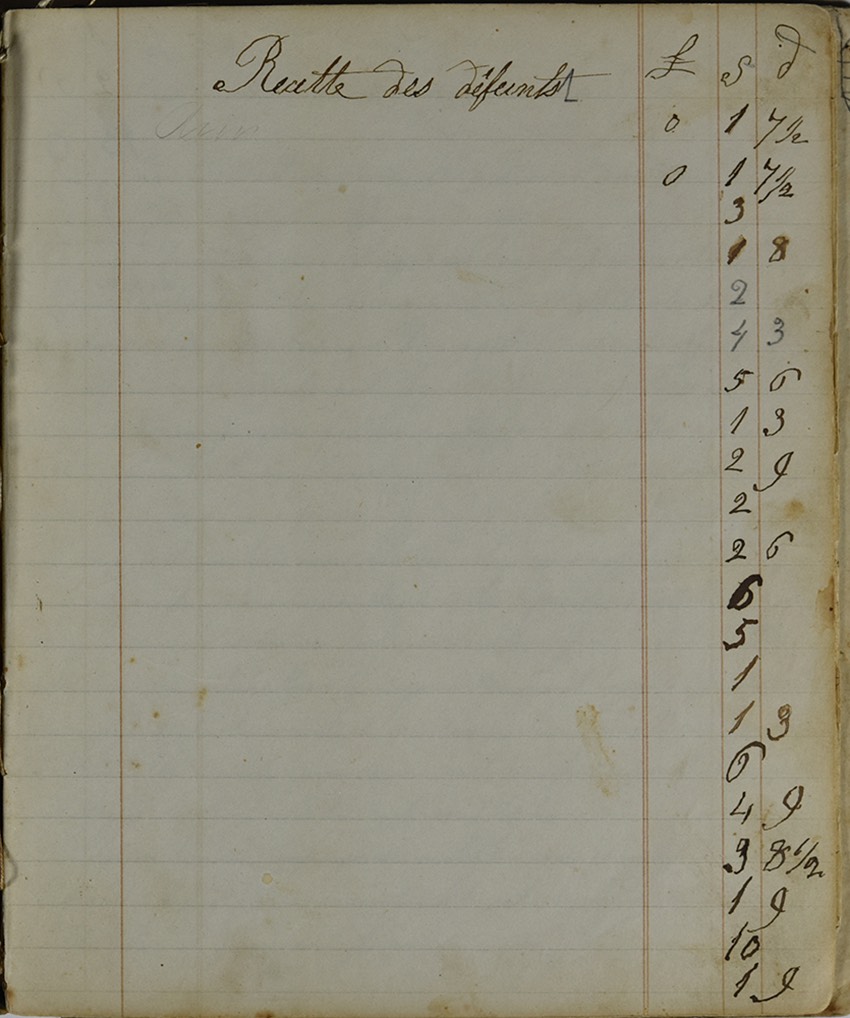 Recette des défunts £ s d
0 1 7 1/2
0 1 7 1/2
3
1 8
2
4 3
5 6
1 3
2 9
2
2 6
6
5
1
1 3
6
4 9
3 8 1/2
1 9
10
1 9